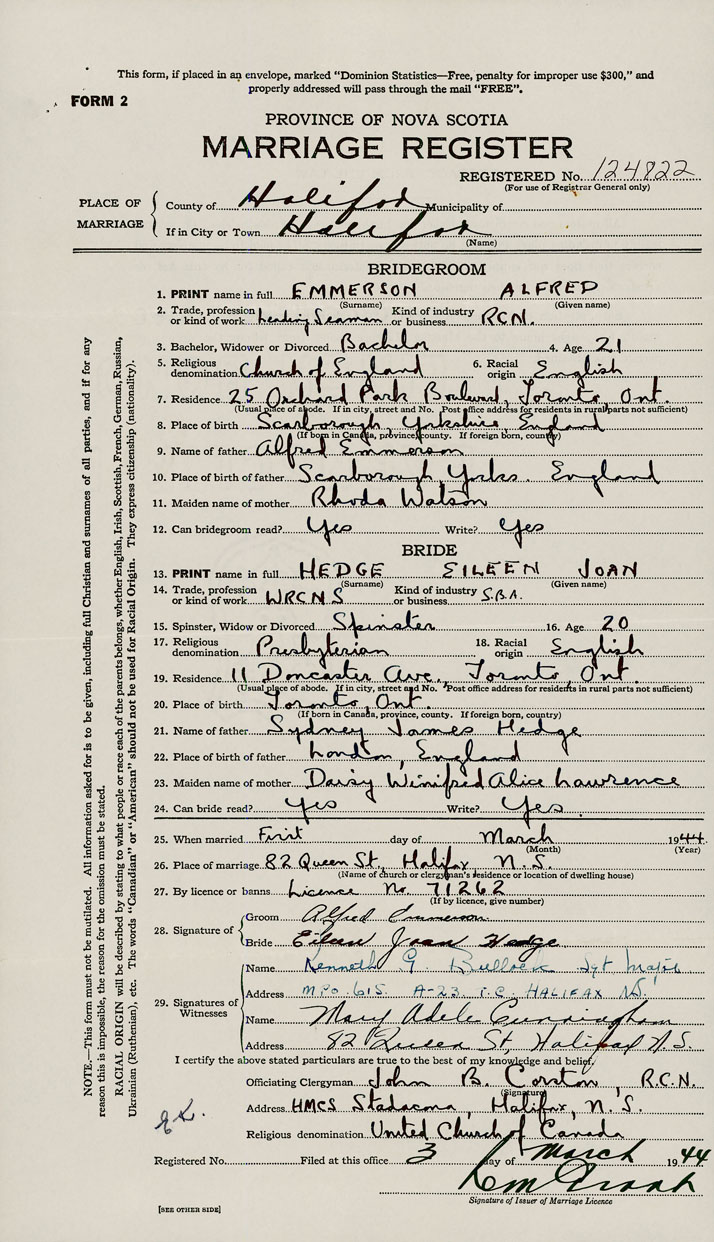 This form, if placed in an envelope, marked “Dominion Statistics—Free, penalty for improper use $300,” and
properly addressed will pass through the mail “FREE”.
FORM 2
PROVINCE OF NOVA SCOTIA
MARRIAGE REGISTER
REGISTERED No. 124822
(For use of Registrar General only)
PLACE OF MARRIAGE
County of Halifax Municipality of
If in City or Town Halifax
(Name)
BRIDEGROOM
1. PRINT name in full EMMERSON ALFRED
(Surname) (Given name)
2. Trade, profession or kind of work Leading Seaman Kind of industry or business RCN.
3. Bachelor, Widower or Divorced Bachelor 4. Age 21
5. Religious denomination Church of England 6. Racial origin English
7. Residence 25 Orchard Park Boulevard, Toronto, Ont.
(Usual place of abode. If in city, street and No. Post office address for residents in rural parts not sufficient)
8. Place of birth Scarborough, Yorkshire, England
(If born in Canada, province, county. If foreign born, country)
9. Name of father Alfred Emmerson
10. Place of birth of father Scarborough Yorks. England
11. Maiden name of mother Rhoda Watson
12. Can bridegroom read? Yes Write? Yes
BRIDE
13. PRINT name in full HEDGE EILEEN JOAN
(Surname) (Given name)
14. Trade, profession or kind of work WRCNS Kind of industry or business S.B.A.
15. Spinster, Widow or Divorced Spinster 16. Age 20
17. Religious denomination Presbyterian 18. Racial origin English
19. Residence 11 Doncaster Ave., Toronto, Ont.
(Usual place of abode. If in city, street and No. Post office address for residents in rural parts not sufficient)
20. Place of birth Toronto, Ont.
(If born in Canada, province, county. If foreign born, country)
21. Name of father Sydney James Hedge
22. Place of birth of father London, England
23. Maiden name of mother Daisy Winifred Alice Lawrence
24. Can bride read? Yes Write? Yes.
25. When married First day of March 1944
(Month) (Year)
26. Place of marriage 82 Queen St., Halifax N.S.
(Name of church or clergyman's residence or location of dwelling house)
27. By licence or banns Licence No. 71262
(If by licence, give number)
28. Signature of
Groom Alfred Emmerson
Bride Eileen Joan Hedge
29. Signatures of Witnesses
Name Kenneth G. Bullock Sgt Major
Address MPO 615 A-23 T.C. HALIFAX NS.
Name Mary Adele Cunningham
Address 82 Queen St, Halifax N.S.
I certify the above stated particulars are true to the best of my knowledge and belief.
Officiating Clergyman John B. Corston, R.C.N.
(Signature)
Address HMCS Stadacona, Halifax, N.S.
Religious denomination United Church of Canada
Registered No. Filed at this office 3 day of March 1944
Signature of Issuer of Marriage Licence
[SEE OTHER SIDE]
NOTE.—This form must not be mutilated. All information asked for is to be given, including full Christian and surnames of all parties, and if for any
reason this is impossible, the reason for the omission must be stated.
RACIAL ORIGIN will be described by stating to what people or race each of the parents belongs, whether English, Irish, Scottish, French, German, Russian,
Ukrainian (Ruthenian), etc. The words “Canadian” or “American” should not be used for Racial Origin. They express citizenship (nationality).